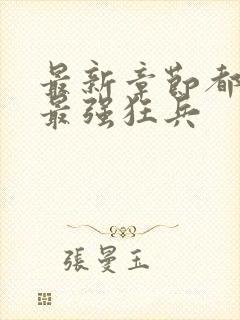 最新章節都
最强狂兵
張曼玉